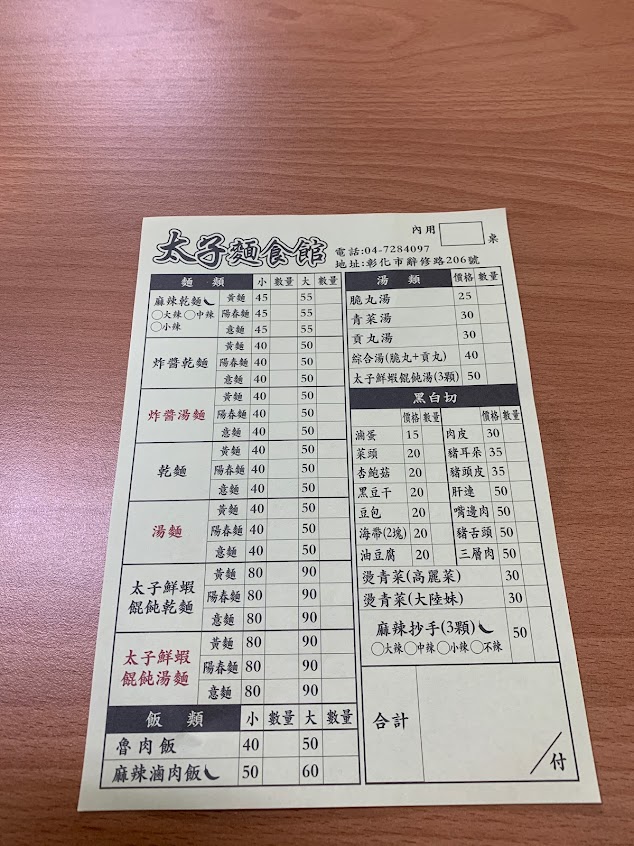 太子麵食館
內用 桌
電話:04-7284097
地址:彰化市辭修路206號
麵類 小 數量 大 數量
麻辣乾麵 黃麵 45 55
○大辣 ○中辣 陽春麵 45 55
○小辣 意麵 45 55
炸醬乾麵 黃麵 40 50
陽春麵 40 50
意麵 40 50
炸醬湯麵 黃麵 40 50
陽春麵 40 50
意麵 40 50
乾麵 黃麵 40 50
陽春麵 40 50
意麵 40 50
湯麵 黃麵 40 50
陽春麵 40 50
意麵 40 50
太子鮮蝦 黃麵 80 90
餛飩乾麵 陽春麵 80 90
意麵 80 90
太子鮮蝦 黃麵 80 90
餛飩湯麵 陽春麵 80 90
意麵 80 90
飯類 小 數量 大 數量
魯肉飯 40 50
麻辣滷肉飯 50 60
湯類 價格 數量
脆丸湯 25
青菜湯 30
貢丸湯 30
綜合湯(脆丸+貢丸) 40
太子鮮蝦餛飩湯(3顆) 50
黑白切
價格 數量 價格 數量
滷蛋 15 肉皮 30
菜頭 20 豬耳朵 35
杏鮑菇 20 豬頭皮 35
黑豆干 20 肝連 50
豆包 20 嘴邊肉 50
海帶(2塊) 20 豬舌頭 50
油豆腐 20 三層肉 50
燙青菜(高麗菜) 30
燙青菜(大陸妹) 30
麻辣抄手(3顆) 50
○大辣 ○中辣 ○小辣 ○不辣
合計
/付